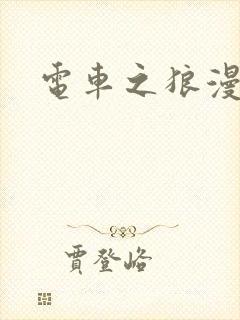 電車之狼漫
賈登峪